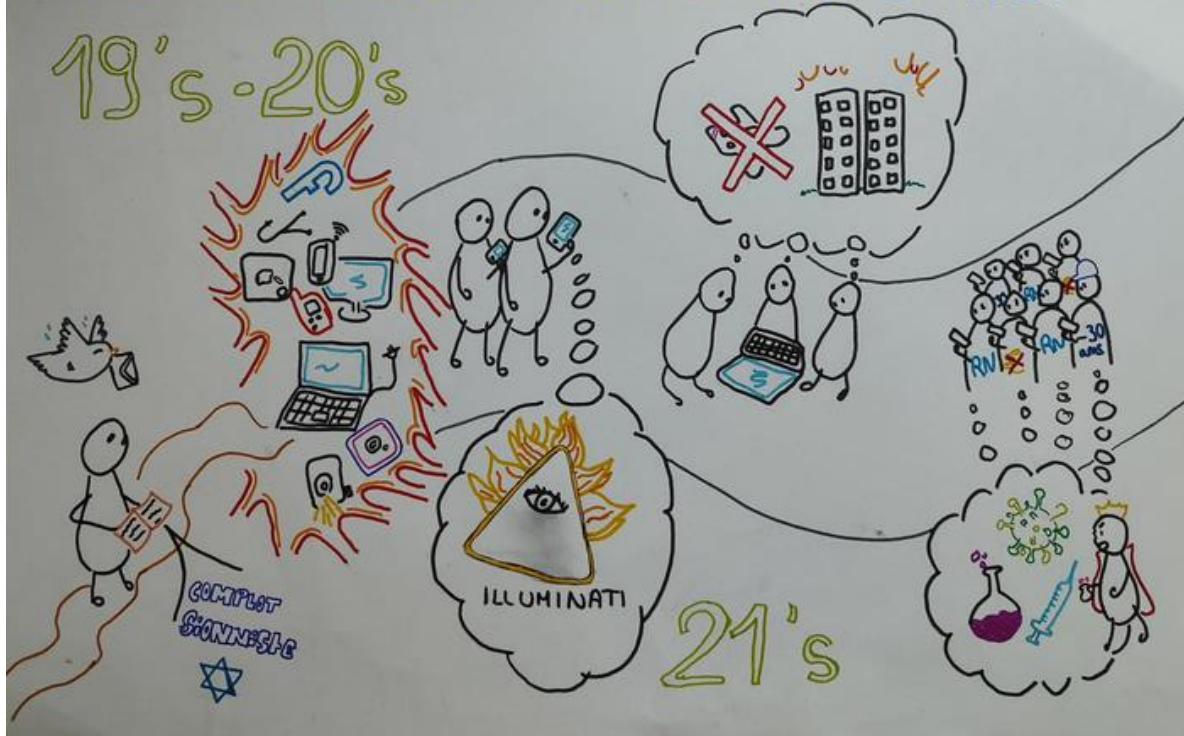 19's-20's
COMPLOT
SiONNiSTE
ILLUMINATI
21's
RN
RN
RN
-30
ans